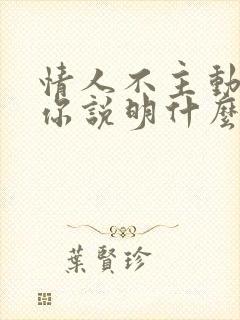 情人不主動
你說明什麼
葉賢珍